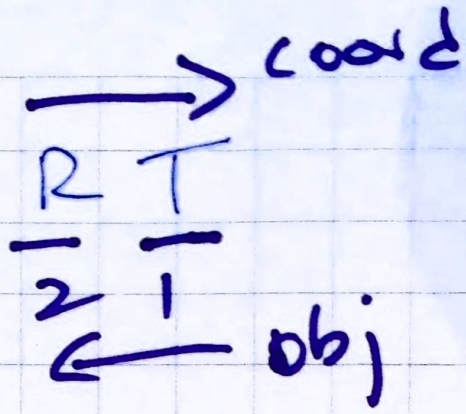 coord
R T
2 1
obj